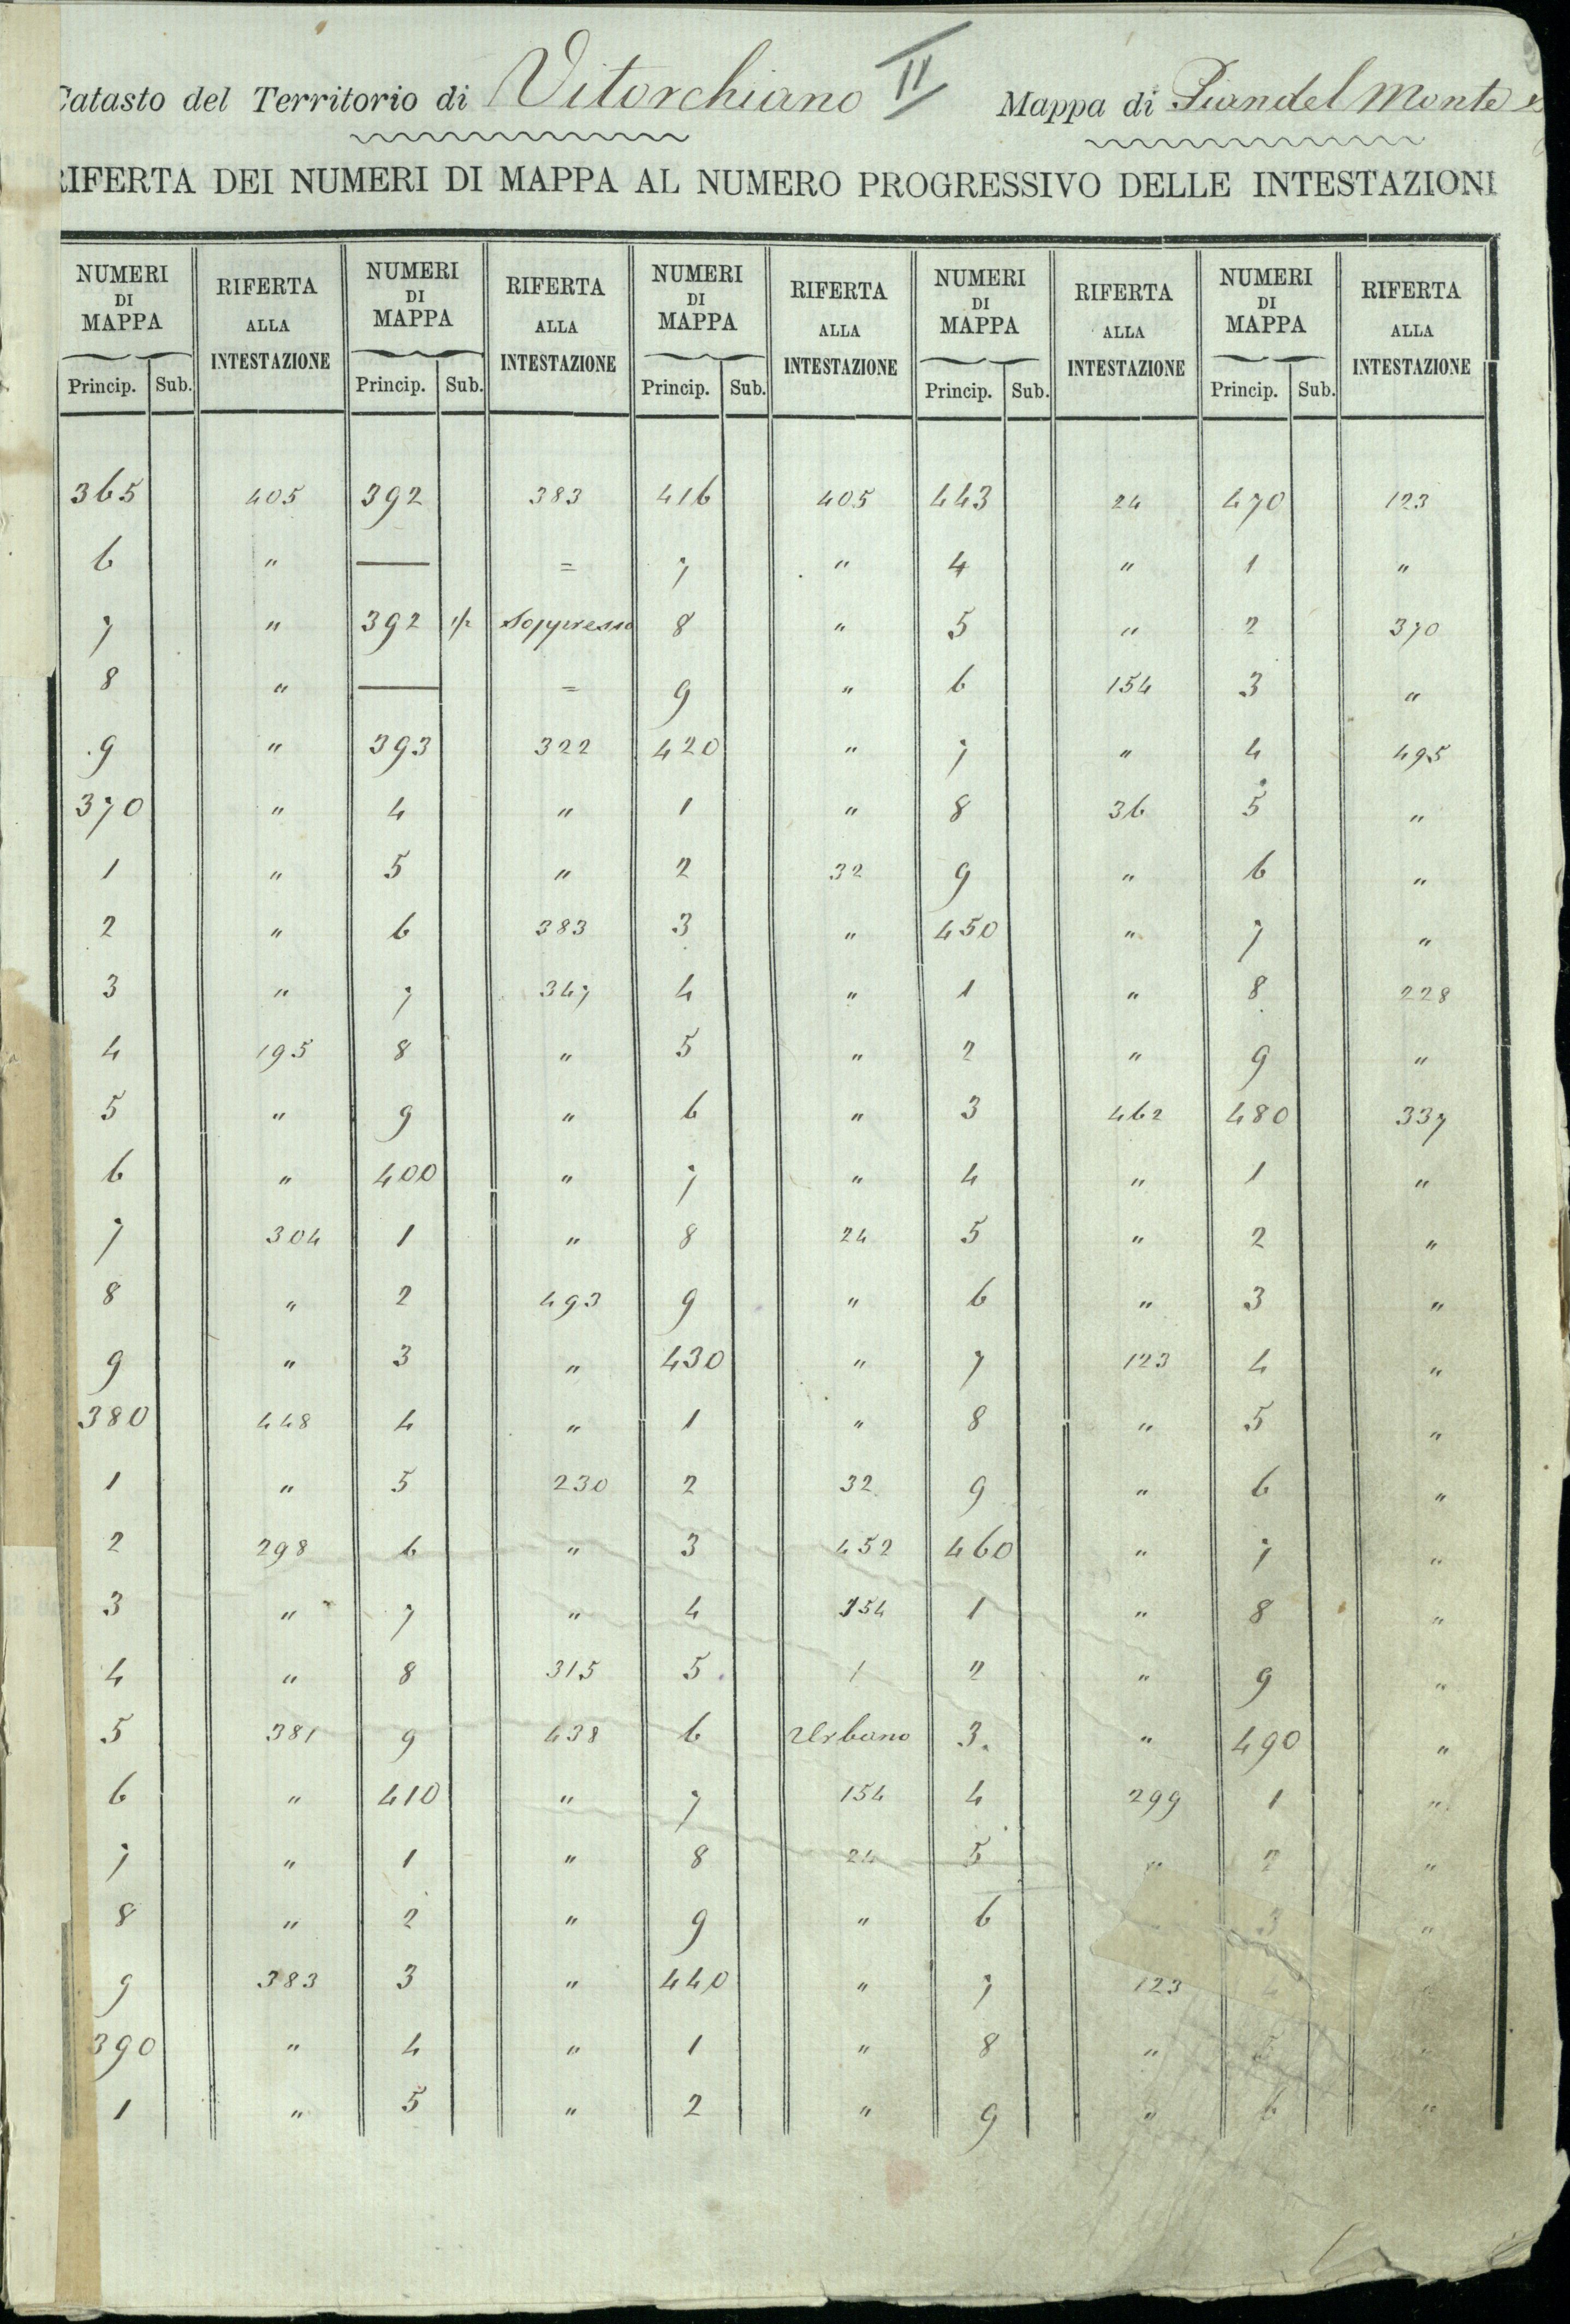 Catasto del Territorio di Vitorchiano II Mappa di Piandel Monte
RIFERTA DEI NUMERI DI MAPPA AL NUMERO PROGRESSIVO DELLE INTESTAZIONI
NUMERI DI MAPPA RIFERTA ALLA INTESTAZIONE NUMERI DI MAPPA RIFERTA ALLA INTESTAZIONE NUMERI DI MAPPA RIFERTA ALLA INTESTAZIONE NUMERI DI MAPPA RIFERTA ALLA INTESTAZIONE NUMERI DI MAPPA RIFERTA ALLA INTESTAZIONE
Princip. Sub. Princip. Sub. Princip. Sub. Princip. Sub. Princip. Sub.
365 405 392 383 416 405 443 24 470 123
6 " — = 7 " 4 " 1 "
7 " 392 1/2 Soppresso 8 " 5 " 2 370
8 " — = 9 " 6 154 3 "
9 " 393 322 420 " 7 " 4 495
370 " 4 " 1 " 8 36 5 "
1 " 5 " 2 32 9 " 6 "
2 " 6 383 3 " 450 " 7 "
3 " 7 347 4 " 1 " 8 228
4 195 8 " 5 " 2 " 9 "
5 " 9 " 6 " 3 462 480 337
6 " 400 " 7 " 4 " 1 "
7 304 1 " 8 24 5 " 2 "
8 " 2 493 9 " 6 " 3 "
9 " 3 " 430 " 7 123 4 "
380 448 4 " 1 " 8 " 5 "
1 " 5 230 2 32 9 " 6 "
2 298 6 " 3 452 460 " 7 "
3 " 7 " 4 154 1 " 8 "
4 " 8 315 5 1 2 " 9 "
5 381 9 438 6 Urbano 3 " 490 "
6 " 410 " 7 154 4 299 1 "
7 " 1 " 8 24 5 " 2 "
8 " 2 " 9 " 6 3 "
9 383 3 " 440 " 7 123 4 "
390 " 4 " 1 " 8 " 5 "
1 " 5 " 2 " 9 " 6 "